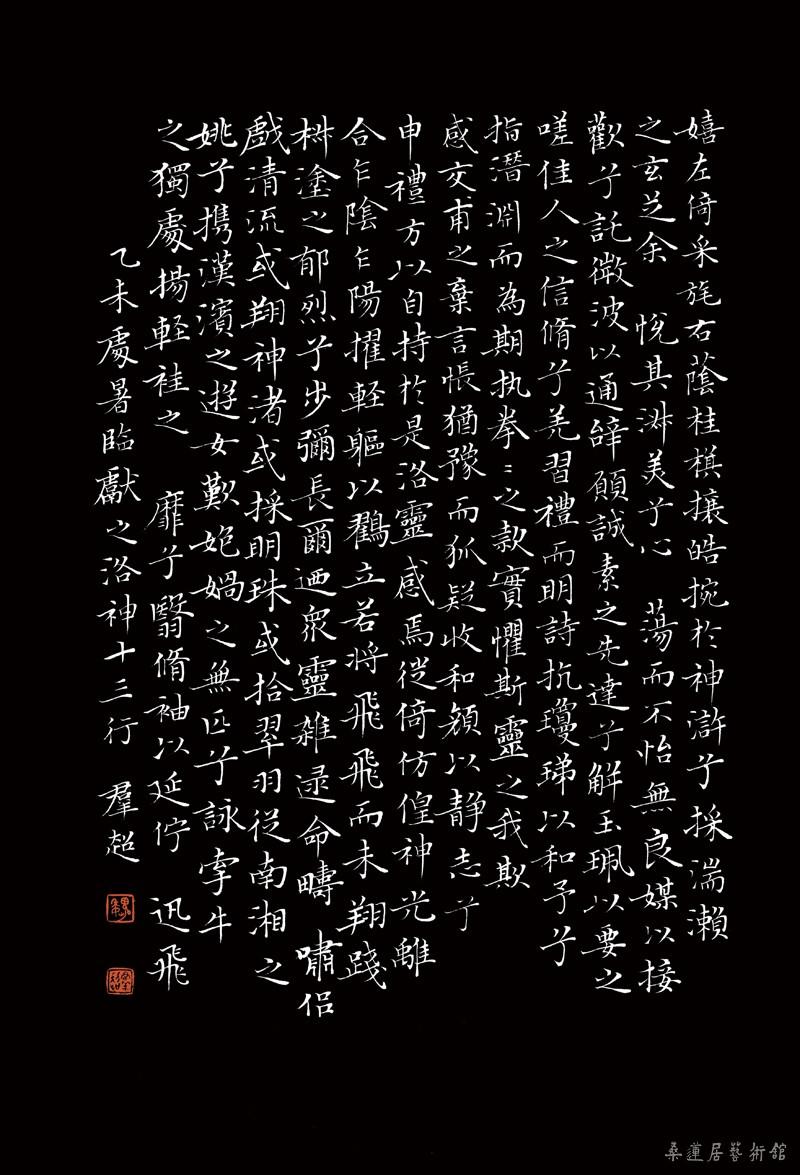 嬉左倚采旄右蔭桂棋攘皓捥於神滸兮採湍瀨
之玄芝余悅其淑美兮心蕩而不怡無良媒以接
歡兮託微波以通辭願誠素之先達兮解玉珮以要之
嗟佳人之信脩兮羌習禮而明詩抗瓊珶以和予兮
指潛淵而為期执拳〻之款實懼斯靈之我欺
感交甫之棄言悵猶豫而狐疑收和顏以静志兮
申禮方以自持於是洛靈感焉徙倚仿偟神光離
合乍陰乍陽擢輕軀以鶴立若将飛飛而未翔踐
椒塗之郁烈兮步彌長爾迺衆靈雜遝命疇嘯侣
戲清流或翔神渚或採明珠或拾翠羽從南湘之
姚兮携漢濱之遊女歎妑媧之無匹兮詠牽牛
之獨處揚輕袿之靡兮翳脩袖以延佇迅飛
乙未處暑臨獻之洛神十三行 羣超
桑蓮居藝術館